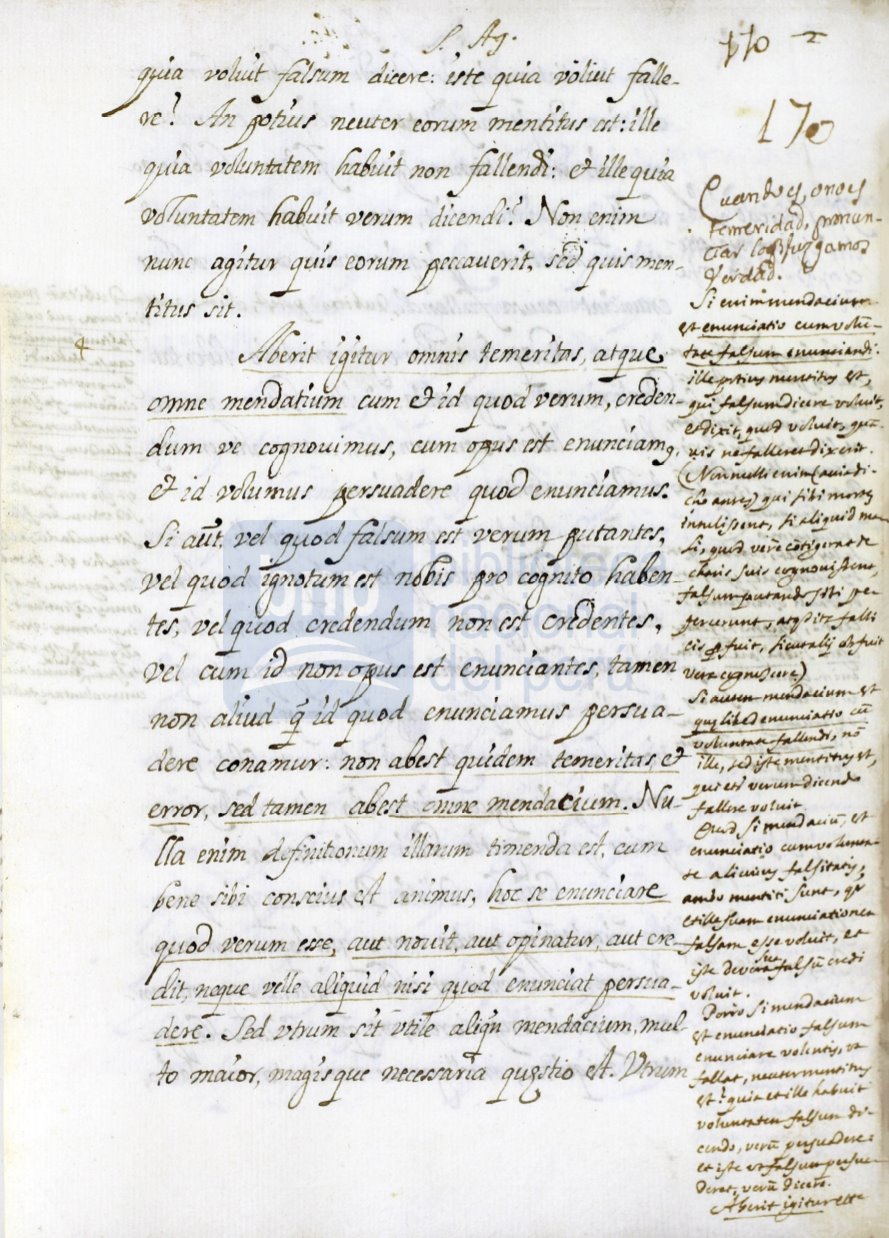 S. Ag.
170 2
170
quia voluit falsum dicere: iste quia voluit falle-
re? An potius neuter eorum mentitus est: ille
quia voluntatem habuit non fallendi: et ille quia
voluntatem habuit verum dicendi? Non enim
nunc agitur quis eorum peccaverit, sed quis men-
titus sit.
4 Aberit igitur omnis temeritas, atque
omne mendatium cum et id quod verum, creden-
dum ve cognovimus, cum opus est enunciamꝰ,
et id volumus persuadere quod enunciamus.
Si aūt. vel quod falsum est verum putantes,
vel quod ignotum est nobis pro cognito haben-
tes, vel quod credendum non est credentes,
vel cum id non opus est enunciantes, tamen
non aliud q̄ id quod enunciamus persua-
dere conamur: non abest quidem temeritas et
error, sed tamen abest omne mendacium. Nu-
lla enim definitionum illarum timenda est, cum
bene sibi conscius est animus, hoc se enunciare
quod verum esse, aut novit, aut opinatur, aut cre-
dit, neque velle aliquid nisi quod enunciat persua-
dere. Sed vtrum sit vtile aliqn̄ mendacium, mul-
to maior, magisque necessaria quęstio est. Vtrum
Cuando es, o no es
temeridad, pronun-
ciar lo q̄ juzgamos
verdad.
Si enim mendacium
est enunciatio cum volū-
tate falsum enunciandi.
ille potius mentitus est,
qui falsum dicere voluit,
et dixit, quod voluit, quā-
vis ne falleret dixerit.
(Nonnulli enim (aia di-
cho antes) qui sibi mortē
intulissent, si aliquid ma
li, quod vere cōtigerat de
charis suis cognovissent,
falsum putando sibi pe-
percerunt, atq̄ ita falli
eis ꝓfuit, sicut alij obfuit
vera cognoscere)
Si autem mendacium est
quęlibed enunciatio cū
voluntate fallendi, nō
ille, sed iste mentitus est,
qui etiā verum dicendo
fallere voluit.
Quod si mendaciū, est
enunciatio cum volunta
te alicuius falsitatis,
ambo mentiti sunt, qa
et ille suam enunciationem
falsam esse voluit, et
iste de vera sua falsū credi
voluit.
Porro si mendacium
est enunciatio falsum
enunciare volentis, ut
fallat, neuter mentitus
est: quia et ille habuit
voluntatem falsum di-
cendo, verū persuadere:
et iste ut falsum persua-
deret, verū dicere.
Aberit igitur etta